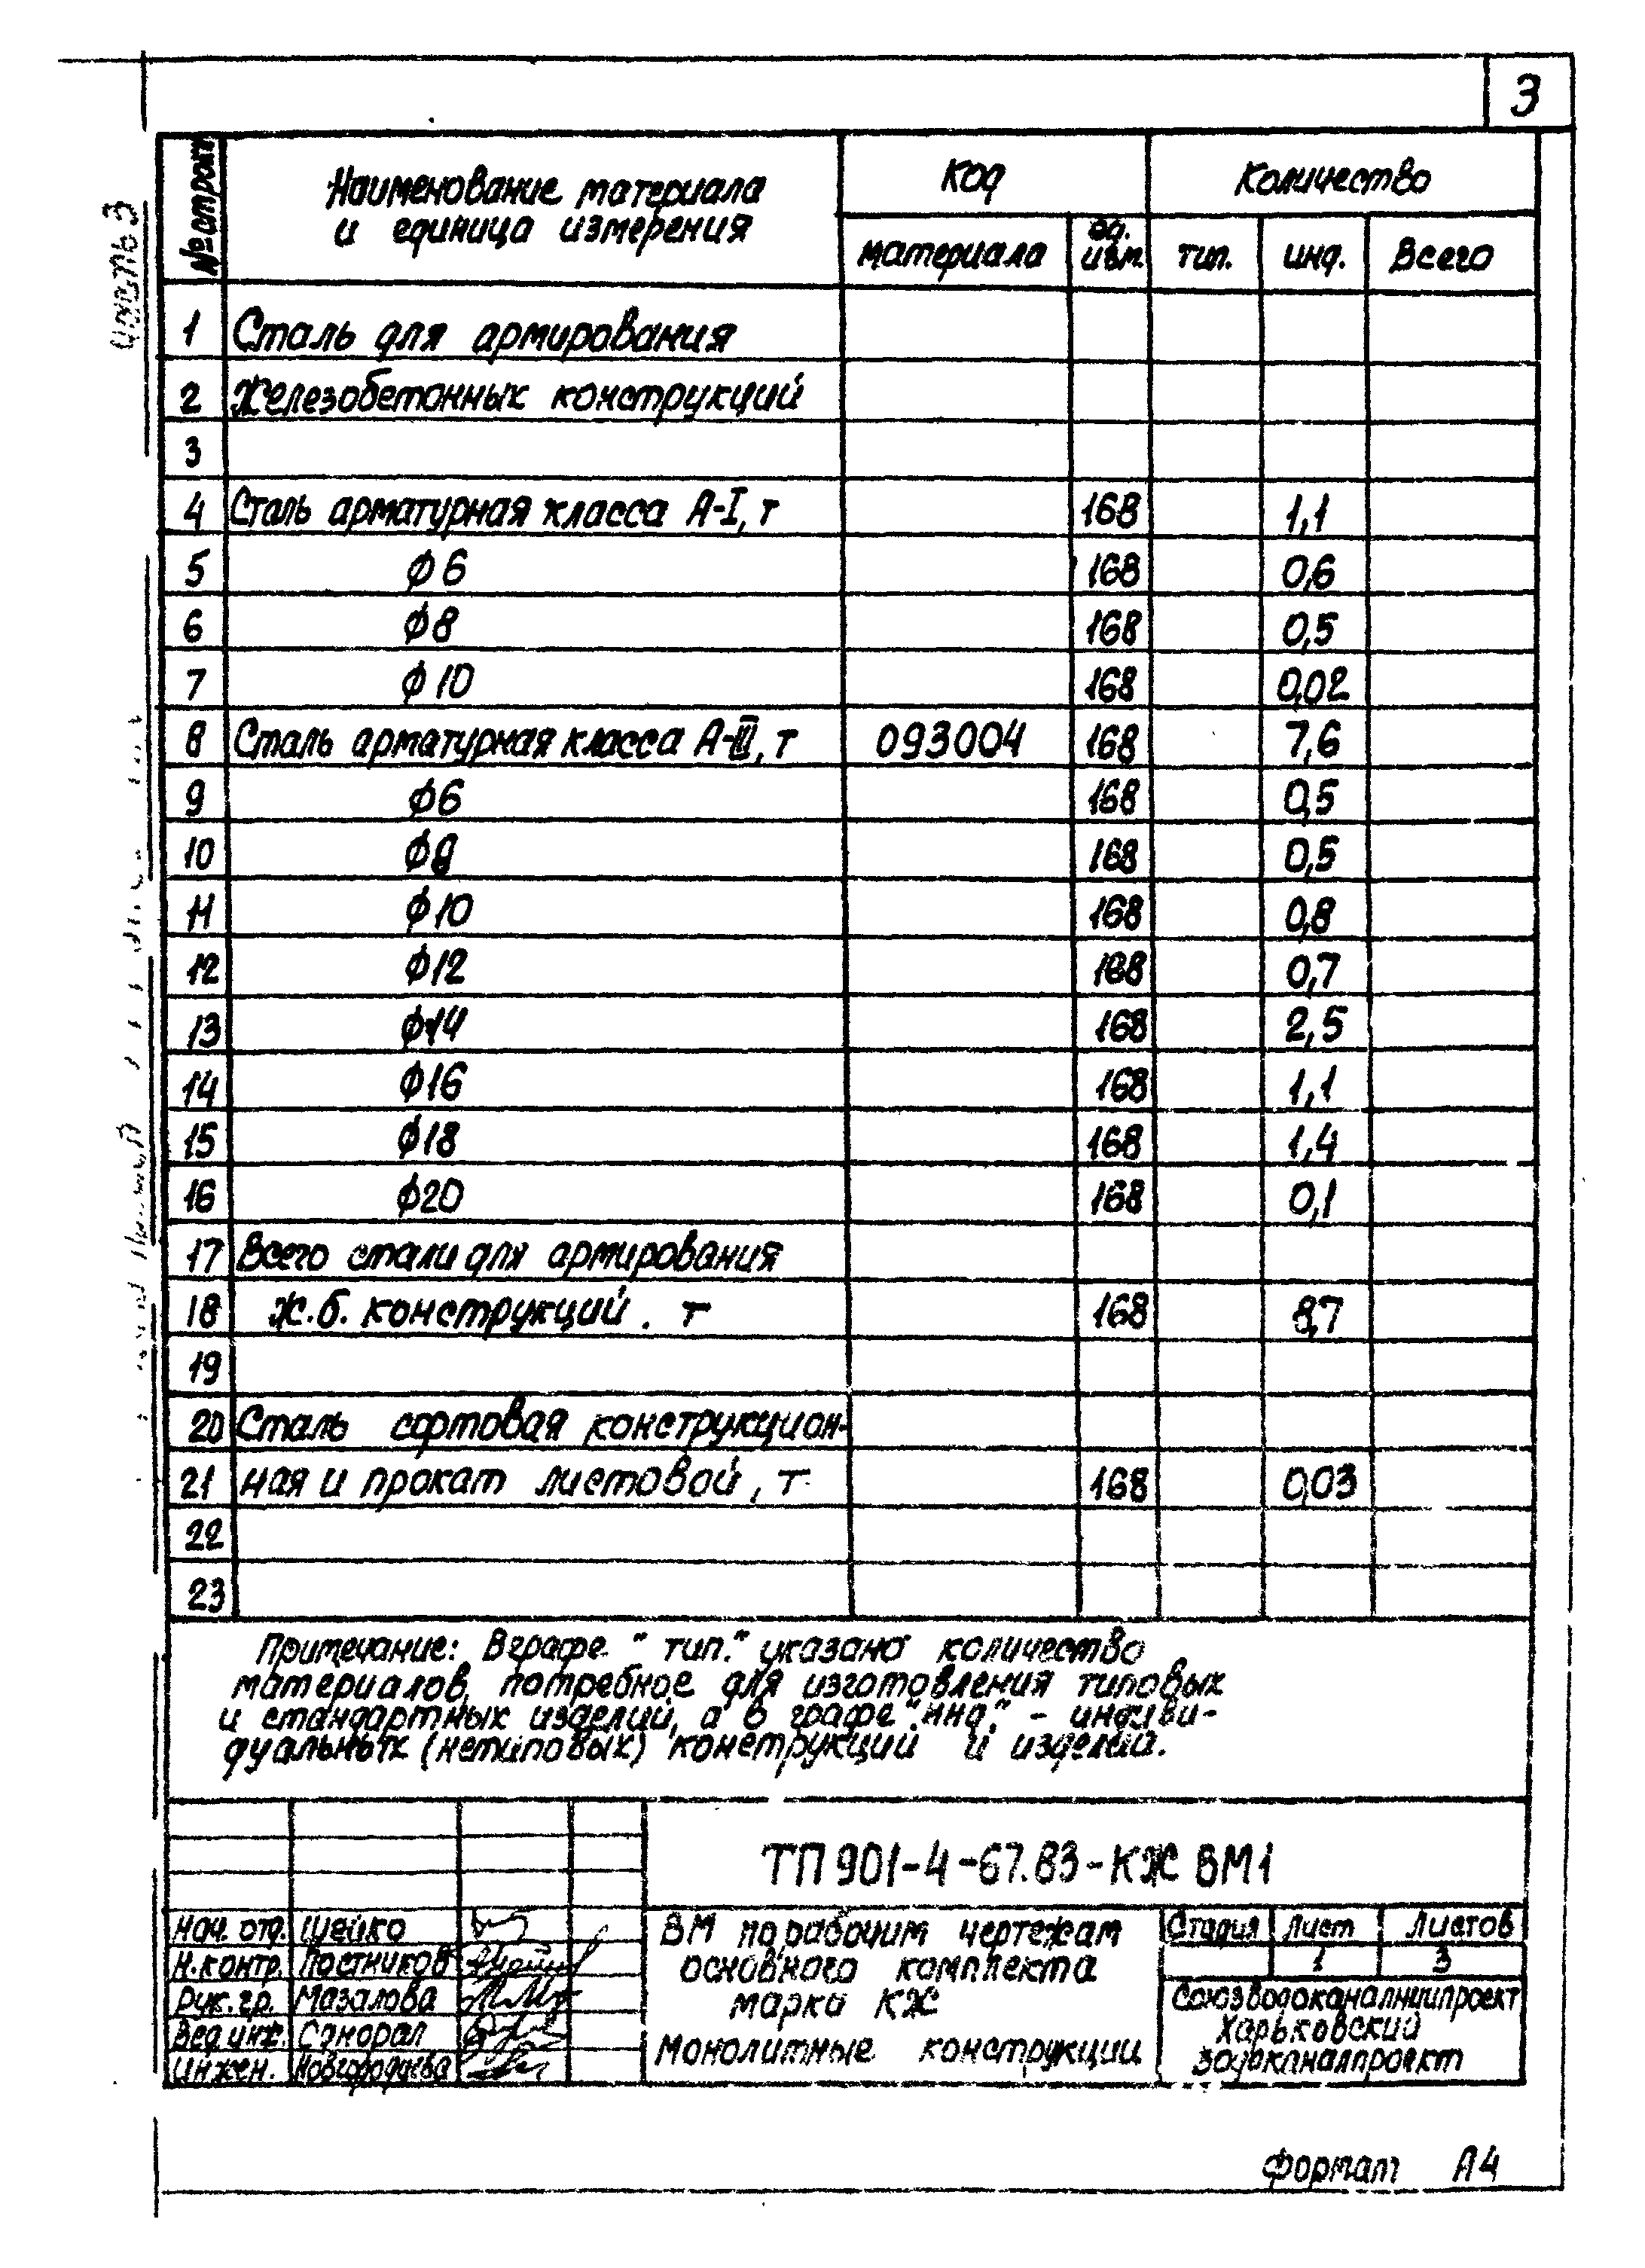 3
Часть 3
№ строк
Наименование материала
и единица измерения
Код
Количество
материала
ед.
изм.
тип.
инд.
Всего
1 Сталь для армирования
2 Железобетонных конструкций
3
4 Сталь арматурная класса А-I, т 168 1,1
5 ϕ6 168 0,6
6 ϕ8 168 0,5
7 ϕ10 168 0,02
8 Сталь арматурная класса А-III, т 093004 168 7,6
9 ϕ6 168 0,5
10 ϕ8 168 0,5
11 ϕ10 168 0,8
12 ϕ12 168 0,7
13 ϕ14 168 2,5
14 ϕ16 168 1,1
15 ϕ18 168 1,4
16 ϕ20 168 0,1
17 Всего стали для армирования
18 ж.б. конструкций. т 168 8,7
19
20 Сталь сортовая конструкцион-
21 ная и прокат листовой, т 168 0,03
22
23
Примечание: В графе "тип." указано количество
материалов, потребное для изготовления типовых
и стандартных изделий, а в графе "инд." - индиви-
дуальных (нетиповых) конструкций и изделий.
ТП 901-4-67.83-КЖ ВМ1
Нач. отд. Шейко
Н.контр. Постников
Рук. гр. Мазалова
Вед.инж.
Инжен.
ВМ по рабочим чертежам
основного комплекта
марки КЖ
Монолитные конструкции
Стадия Лист Листов
1 3
Союзводоканалниипроект
Харьковский
Водоканалпроект
Формат А4